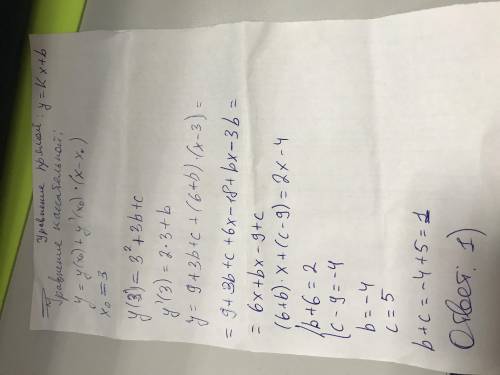 Уравнение прямой: y = kx + b
Уравнение касательной:
y = y(x₀) + y'(x₀)·(x - x₀)
x₀ = 3
y(3) = 3² + 3b + c
y'(3) = 2·3 + b
y = 9 + 3b + c + (6 + b)·(x - 3) =
= 9 + 3b + c + 6x - 18 + bx - 3b =
= 6x + bx - 9 + c
(6 + b)·x + (c - 9) = 2x - 4
{ b + 6 = 2
{ c - 9 = -4
b = -4
c = 5
b + c = -4 + 5 = 1
Ответ: 1)